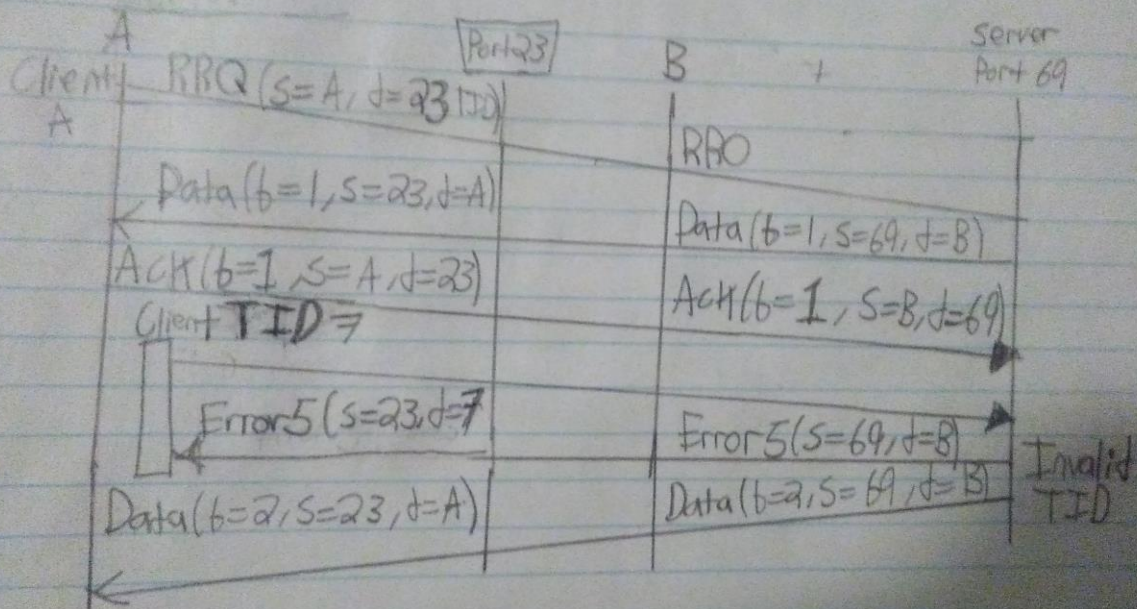 A
Port 23
B
Server
Port 69
Client
A
RRQ (s=A, d=23 TID)
RRQ
Data(b=1, s=23, d=A)
Data(b=1, s=69, d=B)
Ack(b=1, s=A, d=23)
Ack(b=1, s=B, d=69)
Client TID=7
Error5(s=23, d=7
Error5(s=69, d=B)
Invalid
TID
Data(b=2, s=23, d=A)
Data(b=2, s=69, d=B)